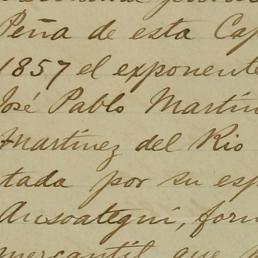 Peña de esta Cap
1857 el exponente
José Pablo Martín
Martínez del Rio
tada por su esp
Ansoategui, for
mercantil que